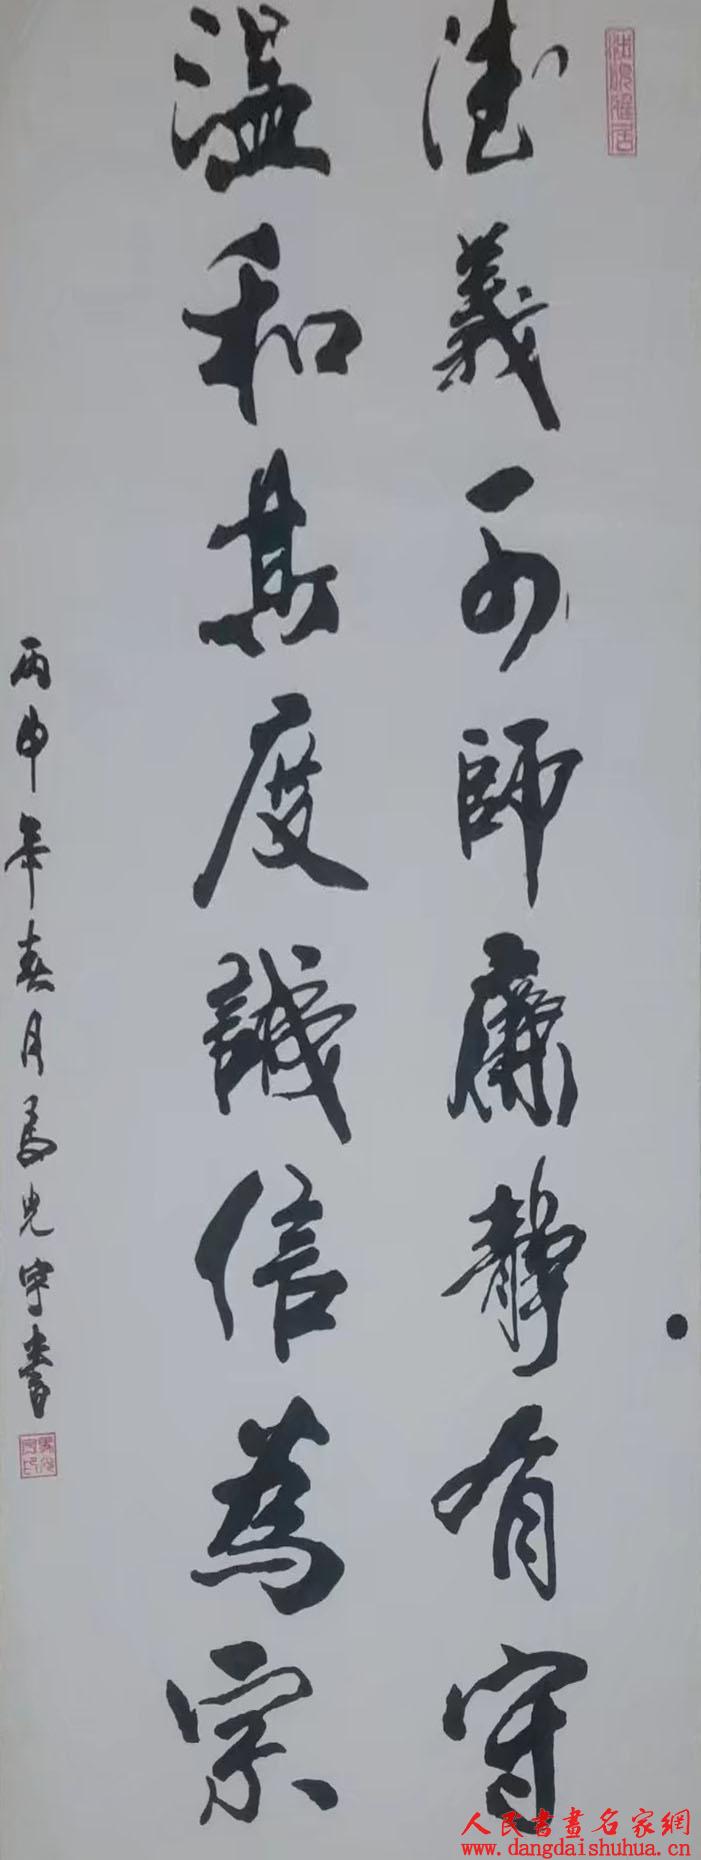 德義可師廉靜有守
溫和其度誠信為宗
丙申年春月馬光宇書
人民書畫名家網
www.dangdaishuhua.cn